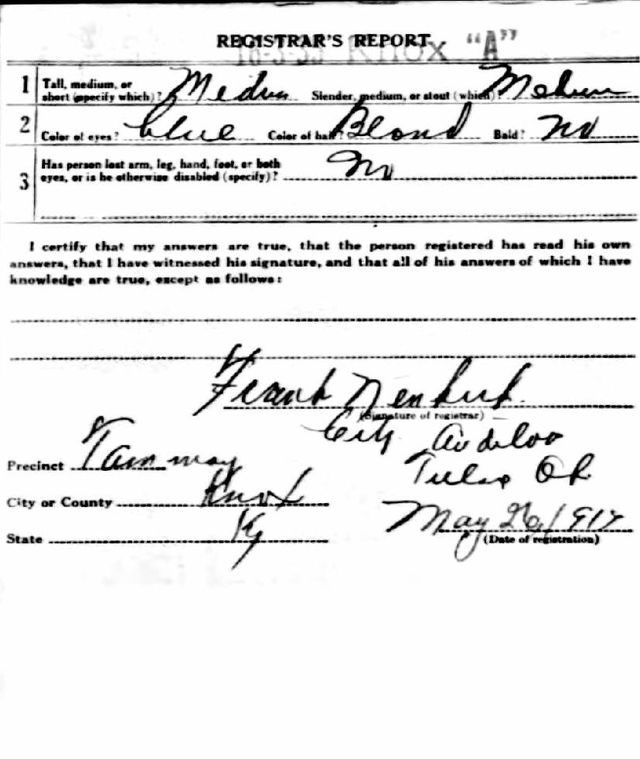 REGISTRAR'S REPORT Knox "A"
1 Tall, medium, or short (specify which)? Medium Slender, medium, or stout (which)? Medium
2 Color of eyes? blue Color of hair? Blond Bald? no
3 Has person lost arm, leg, hand, foot, or both
eyes, or is he otherwise disabled (specify)? No
I certify that my answers are true, that the person registered has read his own
answers, that I have witnessed his signature, and that all of his answers of which I have
knowledge are true, except as follows:
Frank
(Signature of registrar)
City
Precinct
Tulsa Ok
City or County Knox
May 26, 1917
State Ky
(Date of registration)